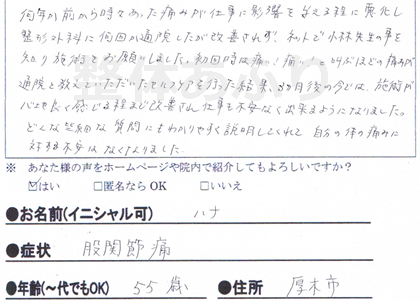 何年か前から時々あった痛みが仕事に影響を与える程に悪化し
整形外科に何回か通院したが改善されず、ネットで小林先生の事を
知り施術をお願いしました。初回時は痛い！痛い！とりがほどの痛みが
通院と教えていただいたセルフケアを行った結果、3ヵ月後の今では、施術が
心地良く感じる程まで改善され仕事も不安なく出来るようになりました。
どんな些細な質問にもわかりやすく説明してくれて自分の体の痛みに
対する不安はなくなりました。
※ あなた様の声をホームページや院内で紹介してもよろしいですか？
☑はい □匿名なら OK □いいえ
●お名前(イニシャル可) ハナ
●症状 股関節痛
●年齢(～代でもOK) 55歳 ●住所 厚木市